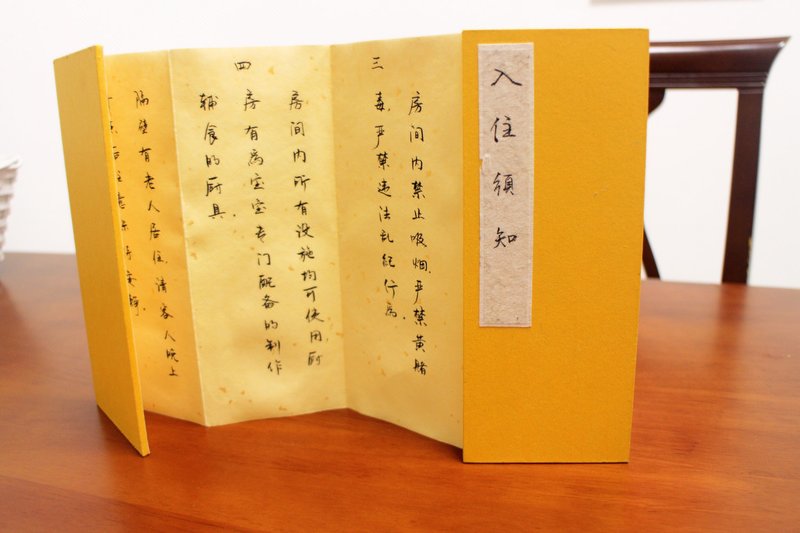 入住須知
三
房间内禁止吸烟、严禁黄赌
毒、严禁违法乱纪行为。
四
房间内所有设施均可使用,厨
房有为宝宝专门配备的制作
辅食的厨具。
隔壁有老人居住,请客人晚上
后注意安静。